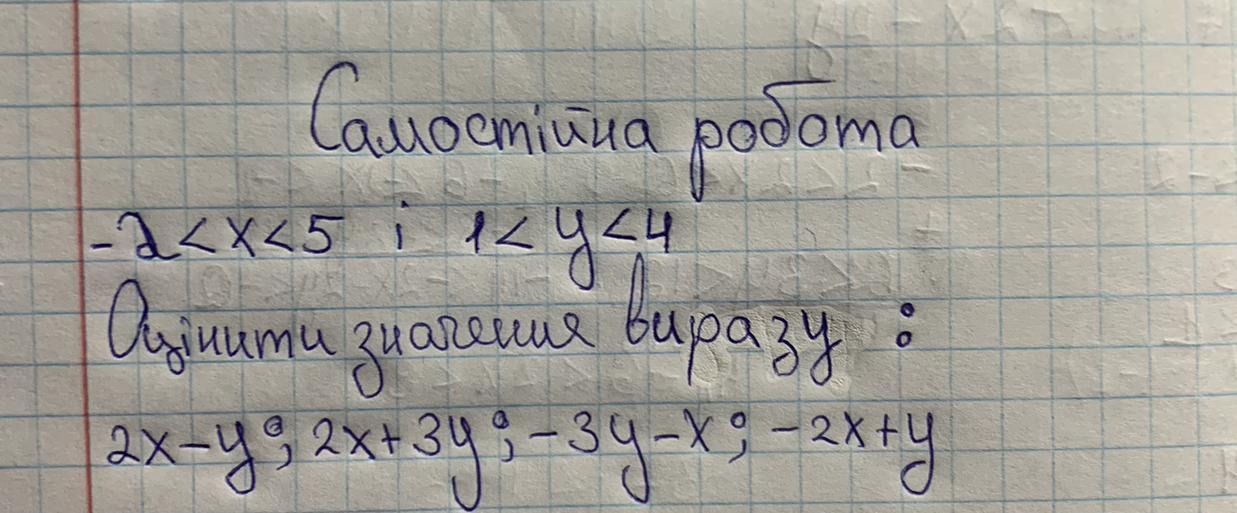 Самостійна робота
-2<x<5 і 1<y<4
Оцінити значення виразу :
2x-y; 2x+3y; -3y-x; -2x+y